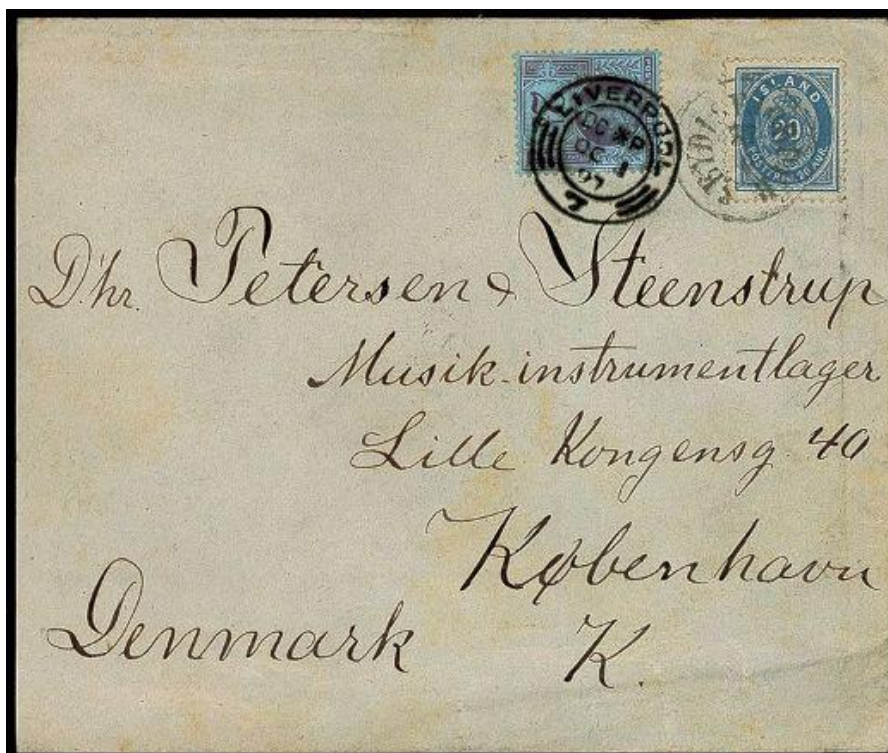 LIVERPOOL
OC 1
ISLAND
20
D'hr. Petersen & Steenstrup
Musik-instrumentlager
Lille Kongensg. 40
København
K.
Denmark